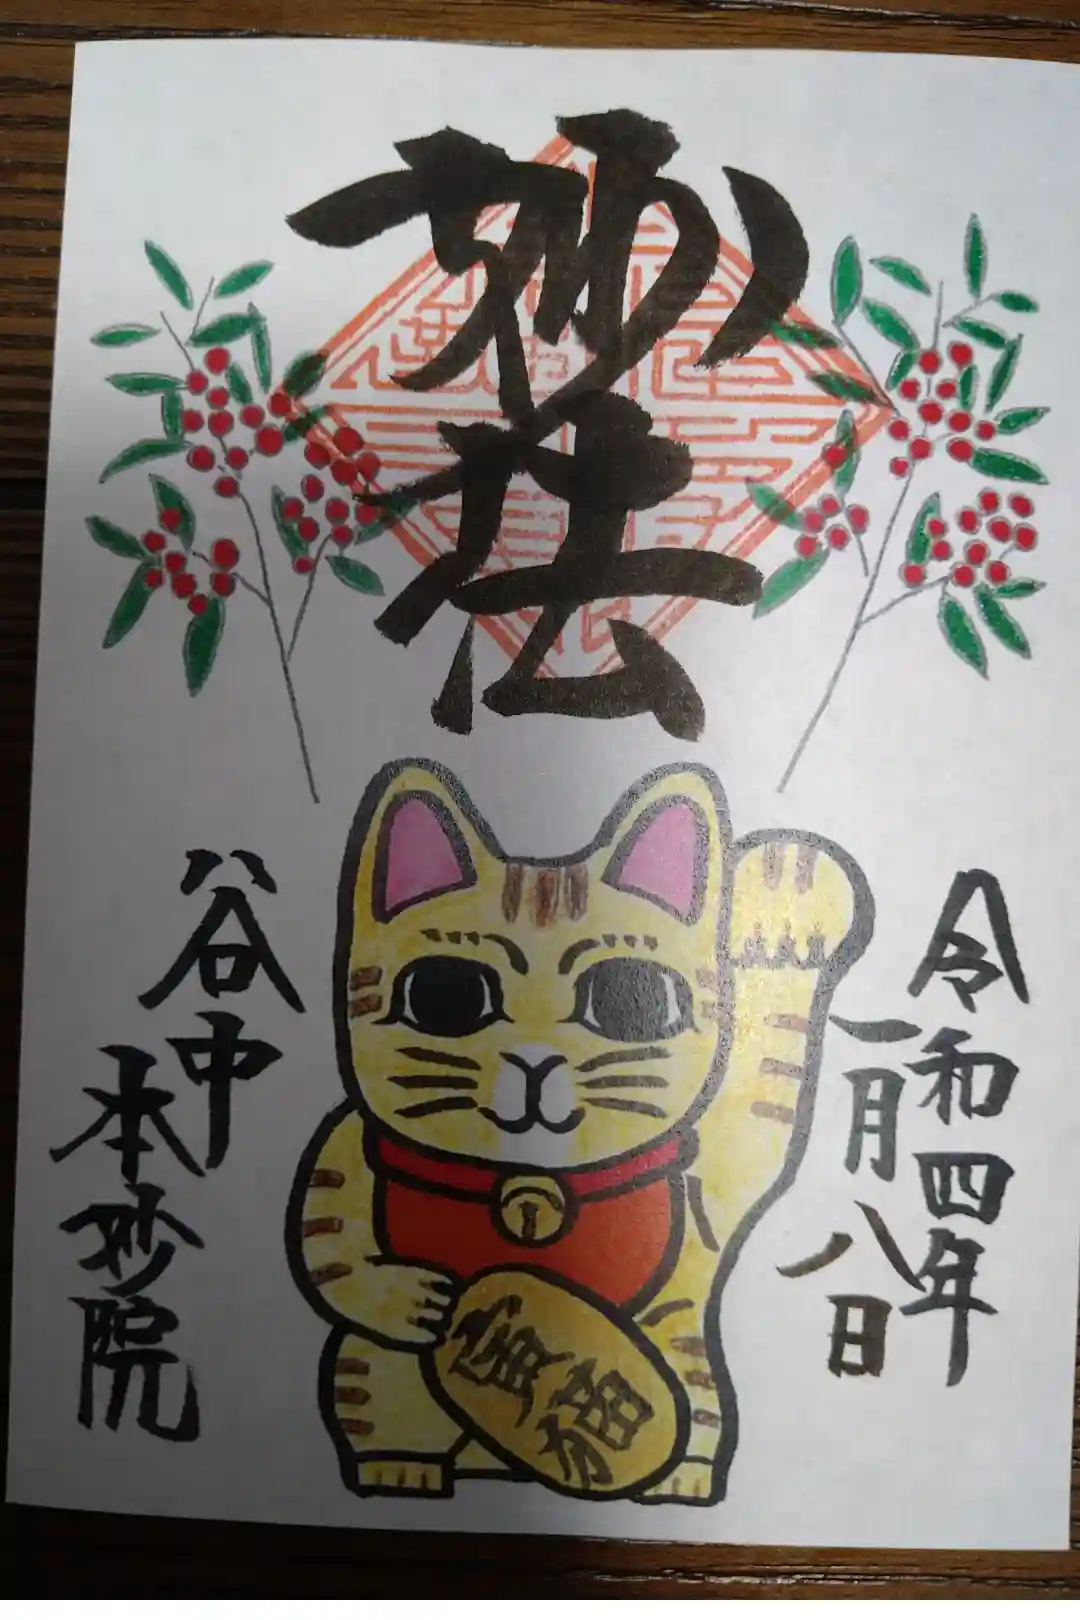 妙法
令和四年
一月八日
谷中
本妙院
寅福